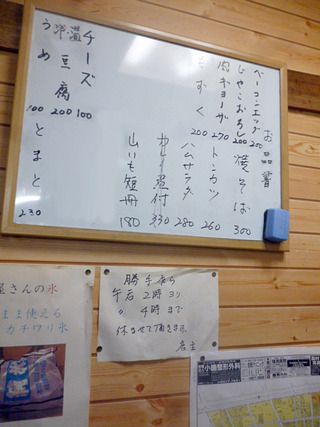 お品書
ベーコンエッグ 250
じゃこおろし 200
肉ギョーザ 270
もずく 200
焼そば 300
トンカツ 260
ハムサラダ 280
カレー皿付 330
山いも短冊 180
チーズ 100
温 冷 豆腐 200
うめ 100
とまと 230
勝手乍ら
午后2時ヨリ
〃 4時まで
休ませて頂きます
店主
屋さんの氷
まま使える
カチワリ氷
小園整形外科